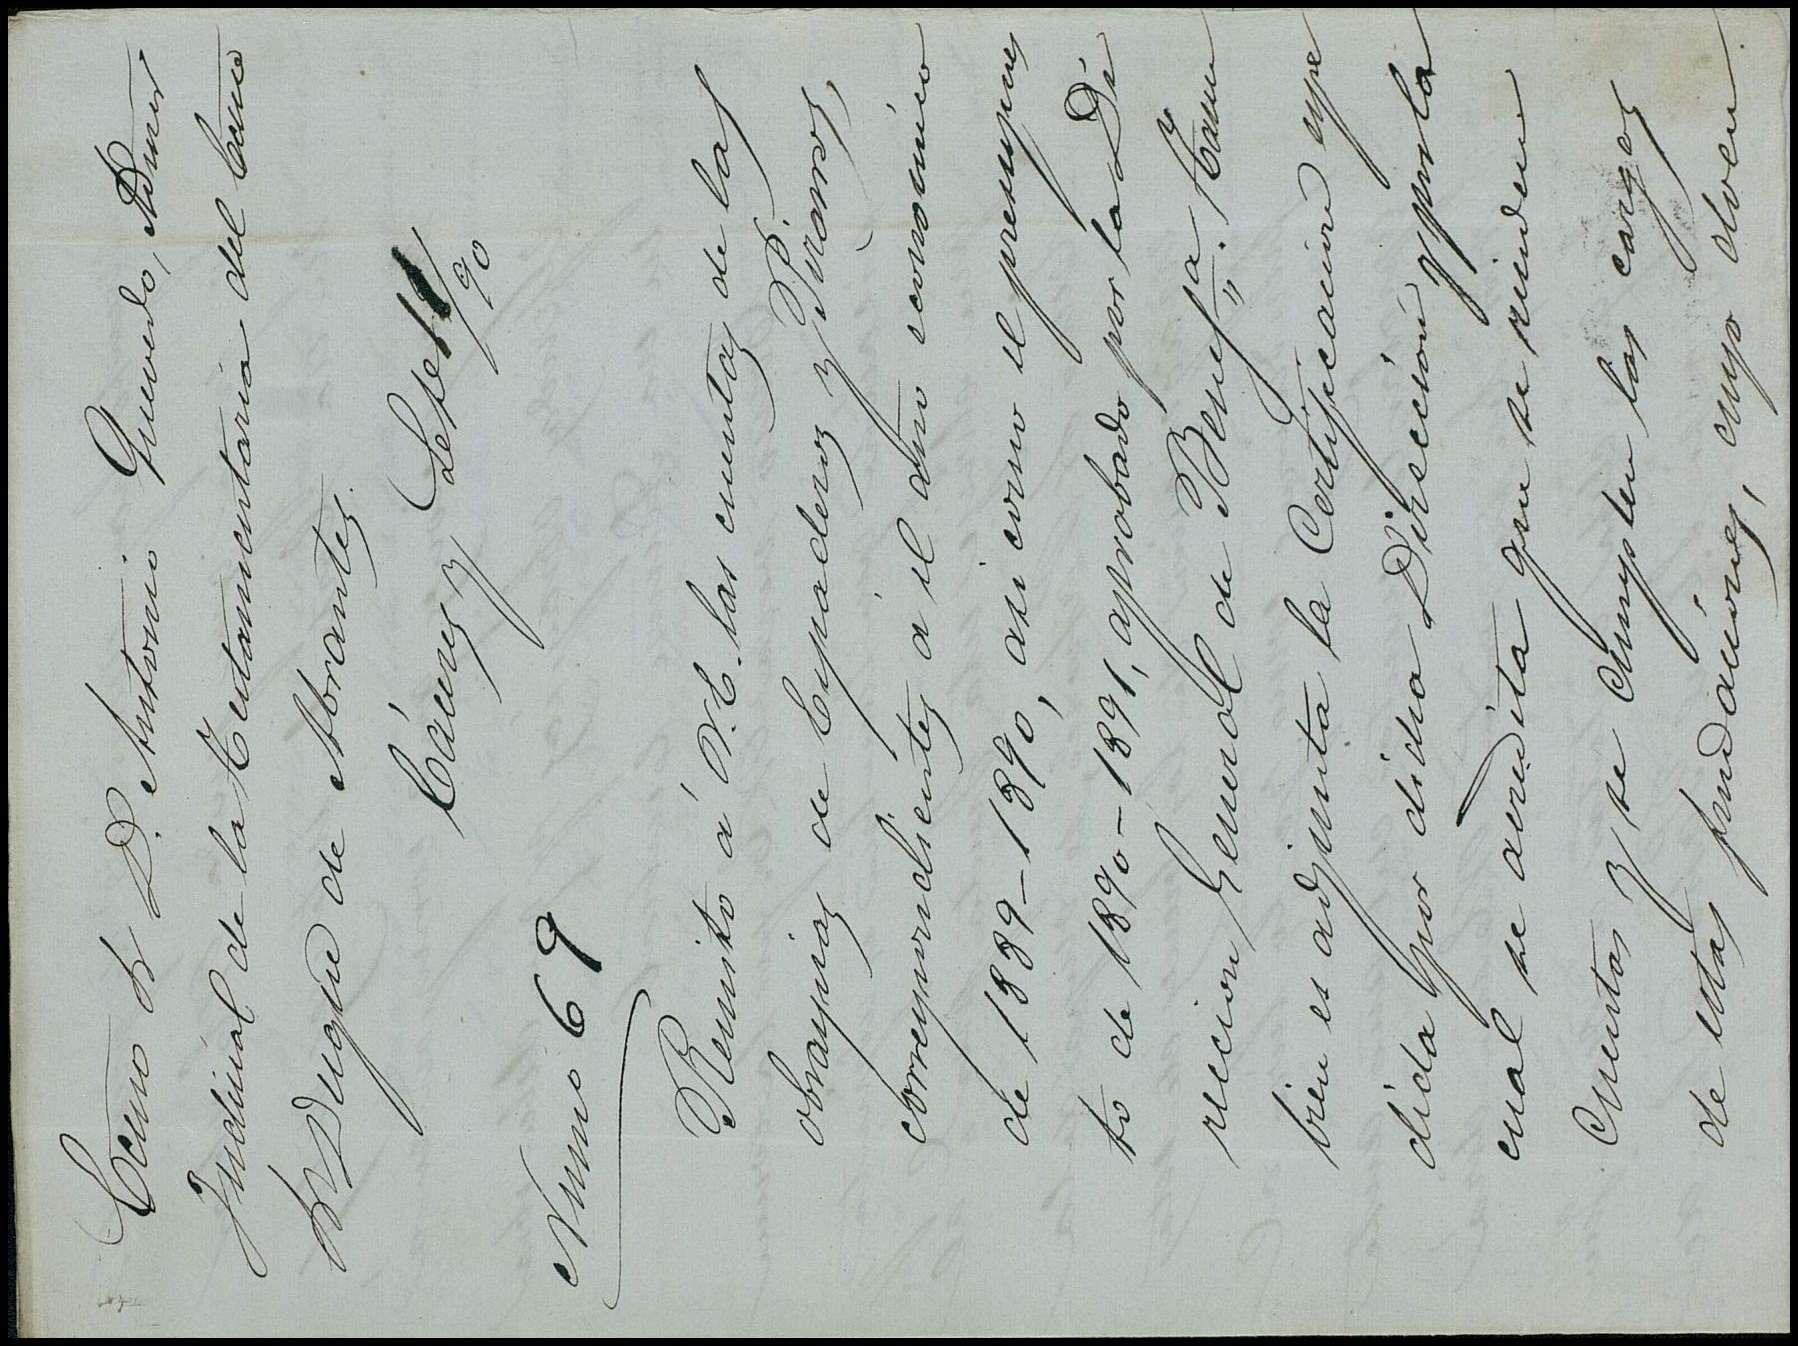 Excmo Sr D. Antonio Quevedo, Admor
Judicial de la Testamentaria del Excmo
Sr Duque de Abrantes.
Cáceres y Sete 11/90
Numo 69
Remito á V.E. las cuentas de las
obraspias de Espaderos y Pizarros,
correspondientes á el año económico
de 1889-1890, asi como el presupues
to de 1890-1891, aprobado por la Di
reccion General de Benefa. Tam
bien es adjunta la Certificacion espe
dida por dicha Direccion, por la
cual se acredita que se rinden
cuentas y se cumplen las cargas
de estas fundaciones, cuyo docu